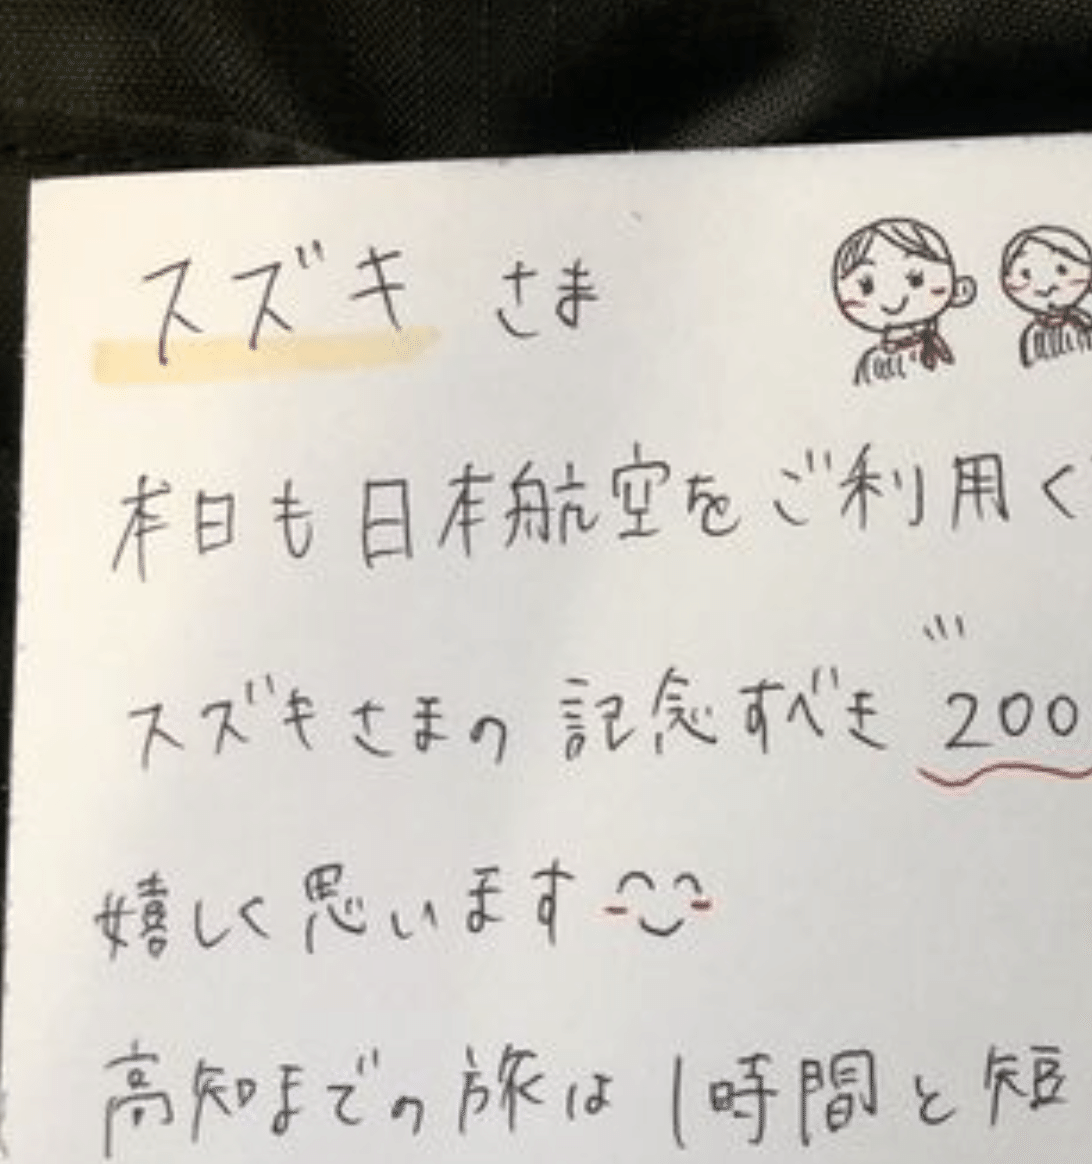 スズキ さま
本日も日本航空をご利用く
スズキさまの 記念すべき 200
嬉しく思います
高知までの旅は1時間と短